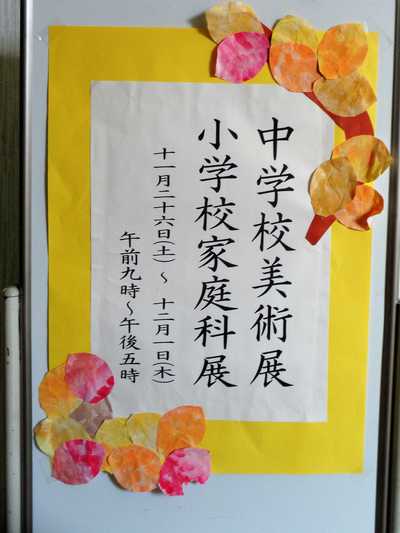 中学校美術展
小学校家庭科展
十一月二十六日(土)～十二月一日(木)
午前九時～午後五時